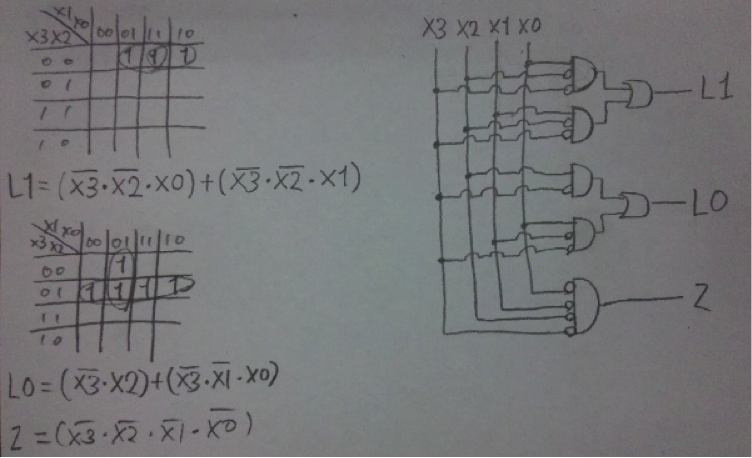 X1 X0
X3 X2 00 01 11 10
0 0 1 1 1
0 1
1 1
1 0
L1 = (X̅3̅ · X̅2̅ · X0) + (X̅3̅ · X̅2̅ · X1)
X1 X0
X3 X2 00 01 11 10
00 1
01 1 1 1 1
11
10
L0 = (X̅3̅ · X2) + (X̅3̅ · X̅1̅ · X0)
Z = (X̅3̅ · X̅2̅ · X̅1̅ · X̅0̅)
X3 X2 X1 X0
L1
L0
Z